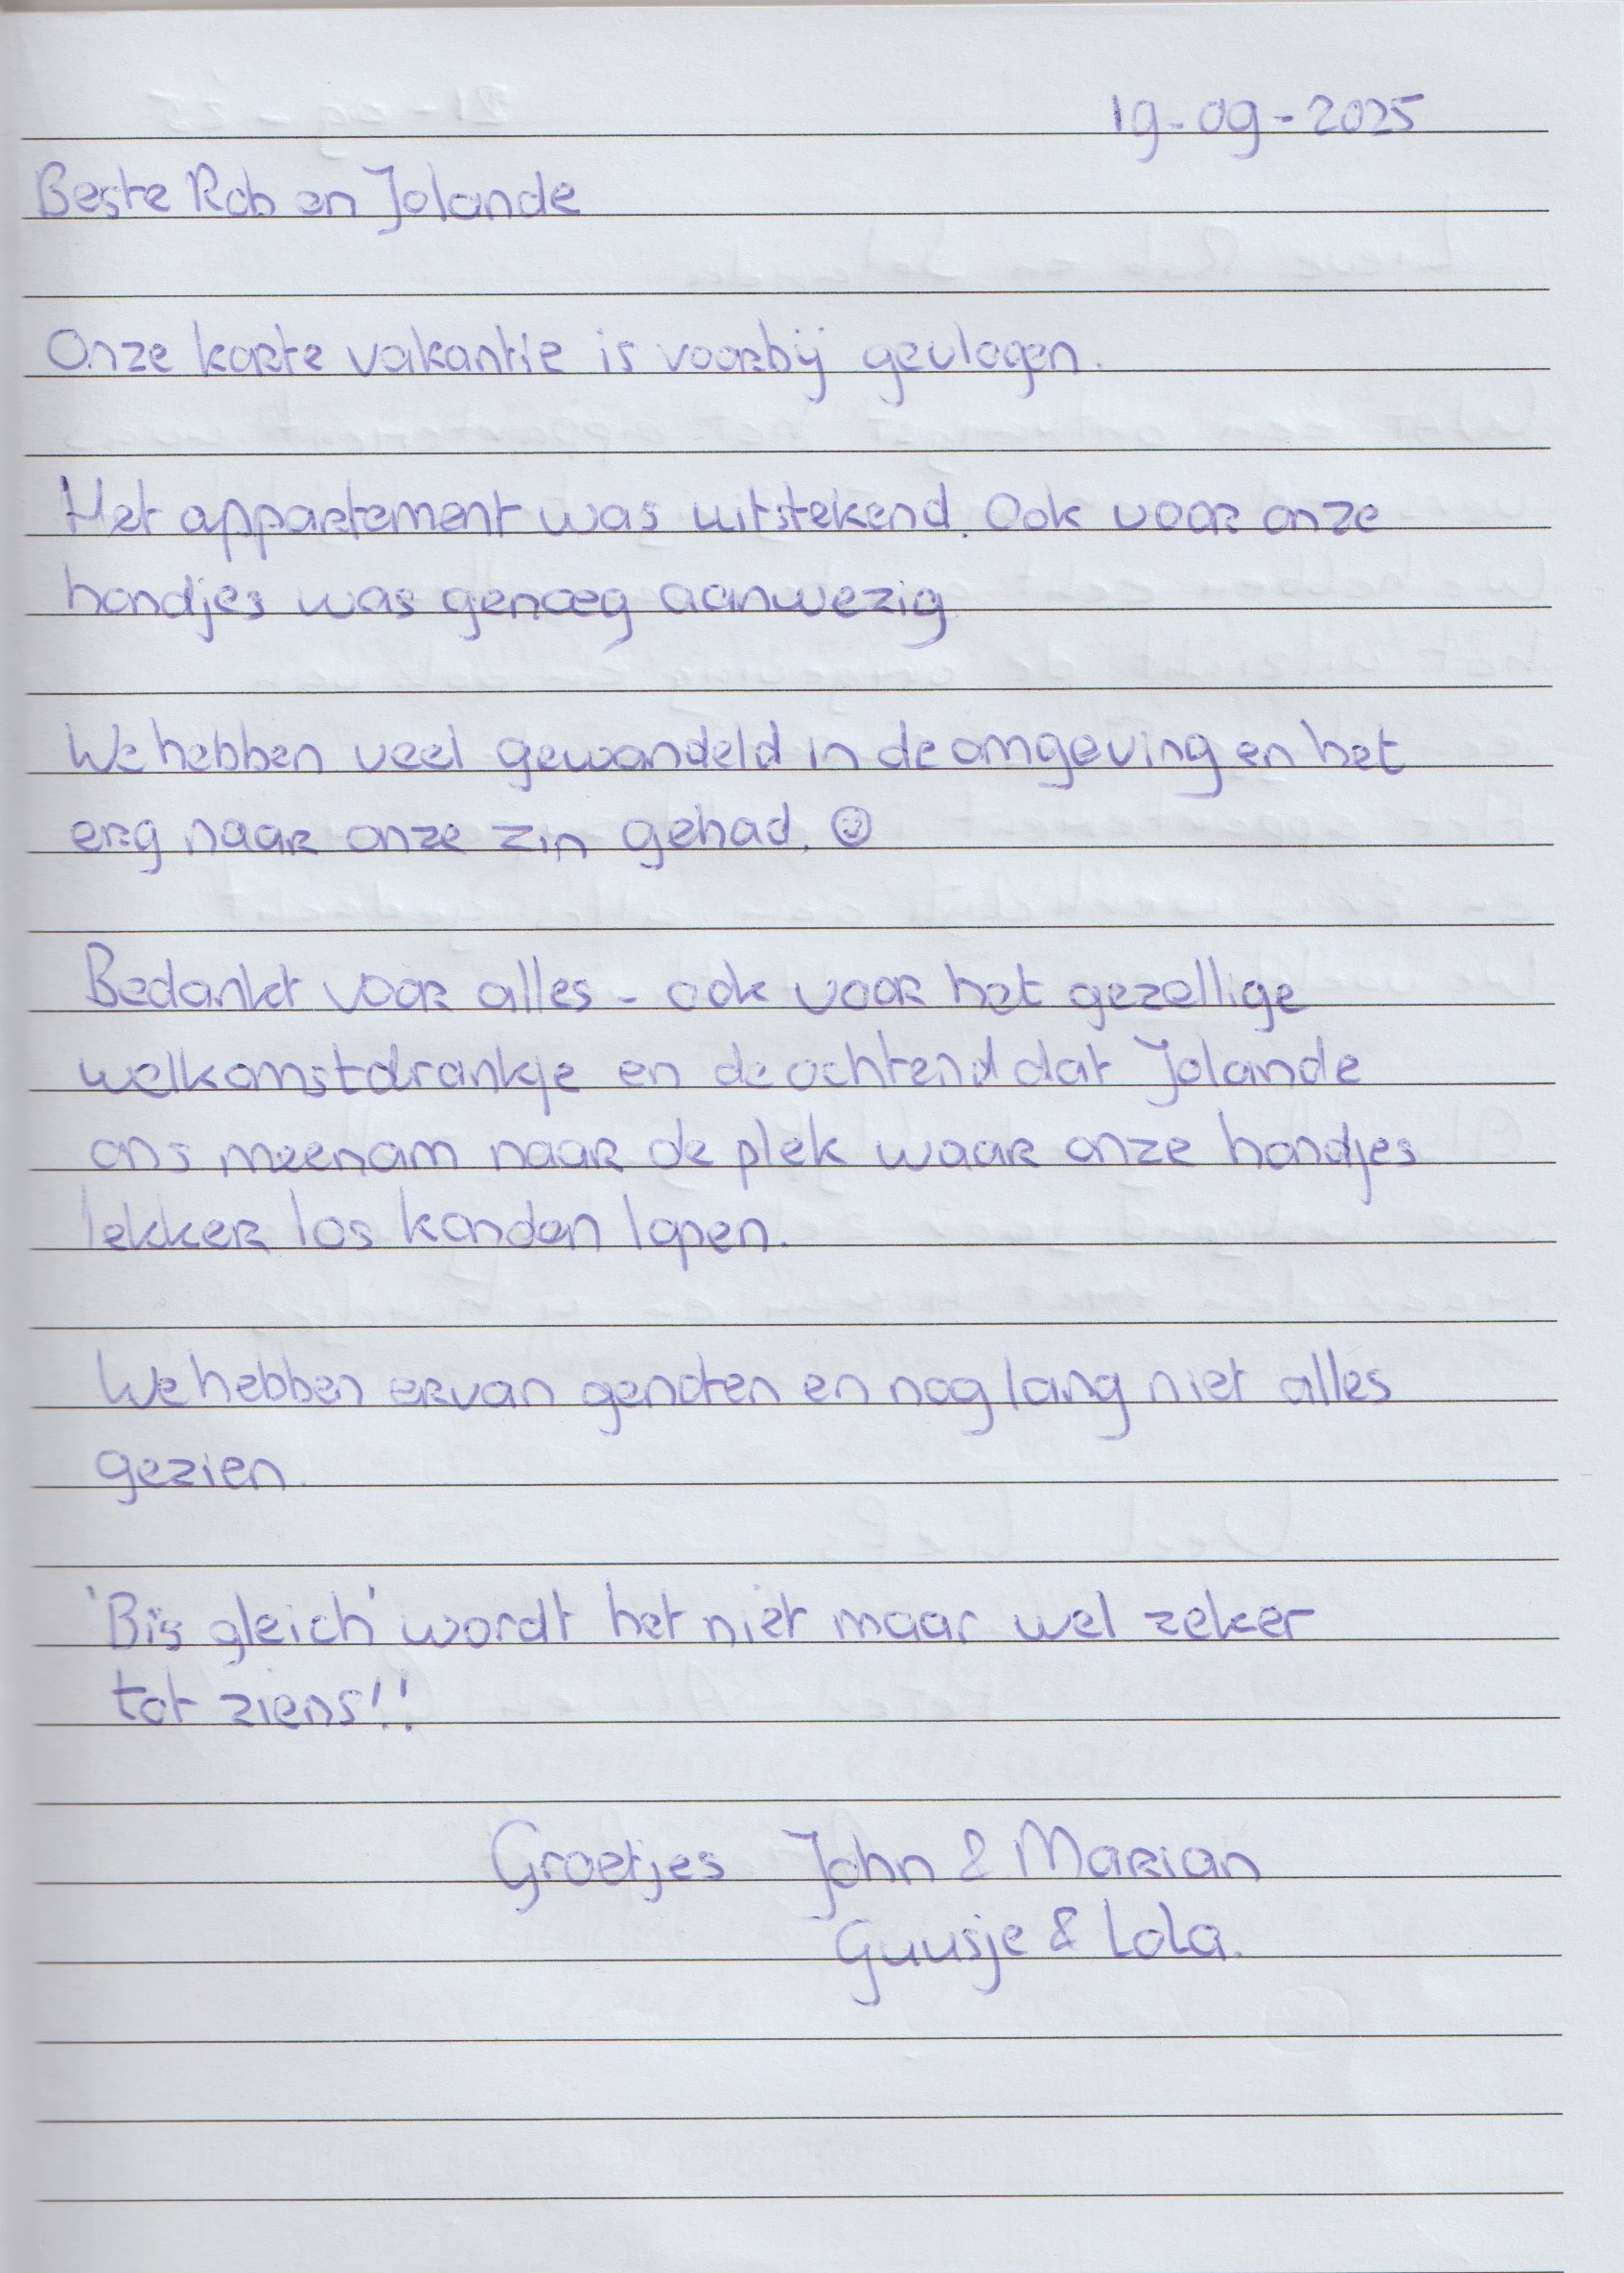 19-09-2025
Beste Rob en Jolande
Onze korte vakantie is voorbij gevlogen.
Het appartement was uitstekend. Ook voor onze
hondjes was genoeg aanwezig
We hebben veel gewandeld in de omgeving en het
erg naar onze zin gehad. ☺
Bedankt voor alles - ook voor het gezellige
welkomstdrankje en de ochtend dat Jolande
ons meenam naar de plek waar onze hondjes
lekker los konden lopen.
We hebben ervan genoten en nog lang niet alles
gezien.
'Bis gleich' wordt het niet maar wel zeker
tot ziens!!
Groetjes John & Marian
Guusje & Lola.